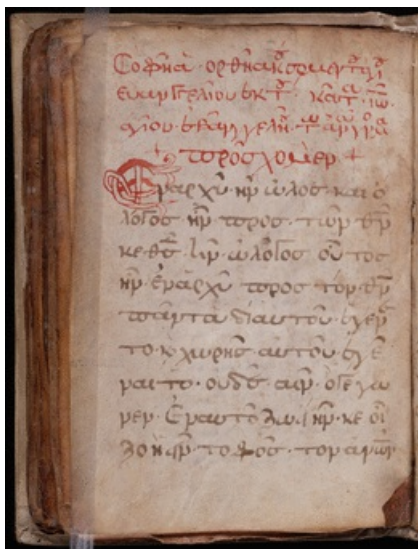 Σοφηα · ορθη
ευαγγελιου εκ τ κατ Ιω
αγιου ευαγγελη
+ προσχομεν +
Εν αρχη · ην ω λογος και ο
λογος ην προς · τον θν
κε θς ην ω λογος ου τος
ην · εν αρχη προς τον θν
παντα δι αυτου εγεν
το κ χωρης αυτου εγε
νατο · ουδε · ο γεγω
νεν · Εν αυτο ζωι ην · κε οι
ζοη ην · το φος · τον ανων